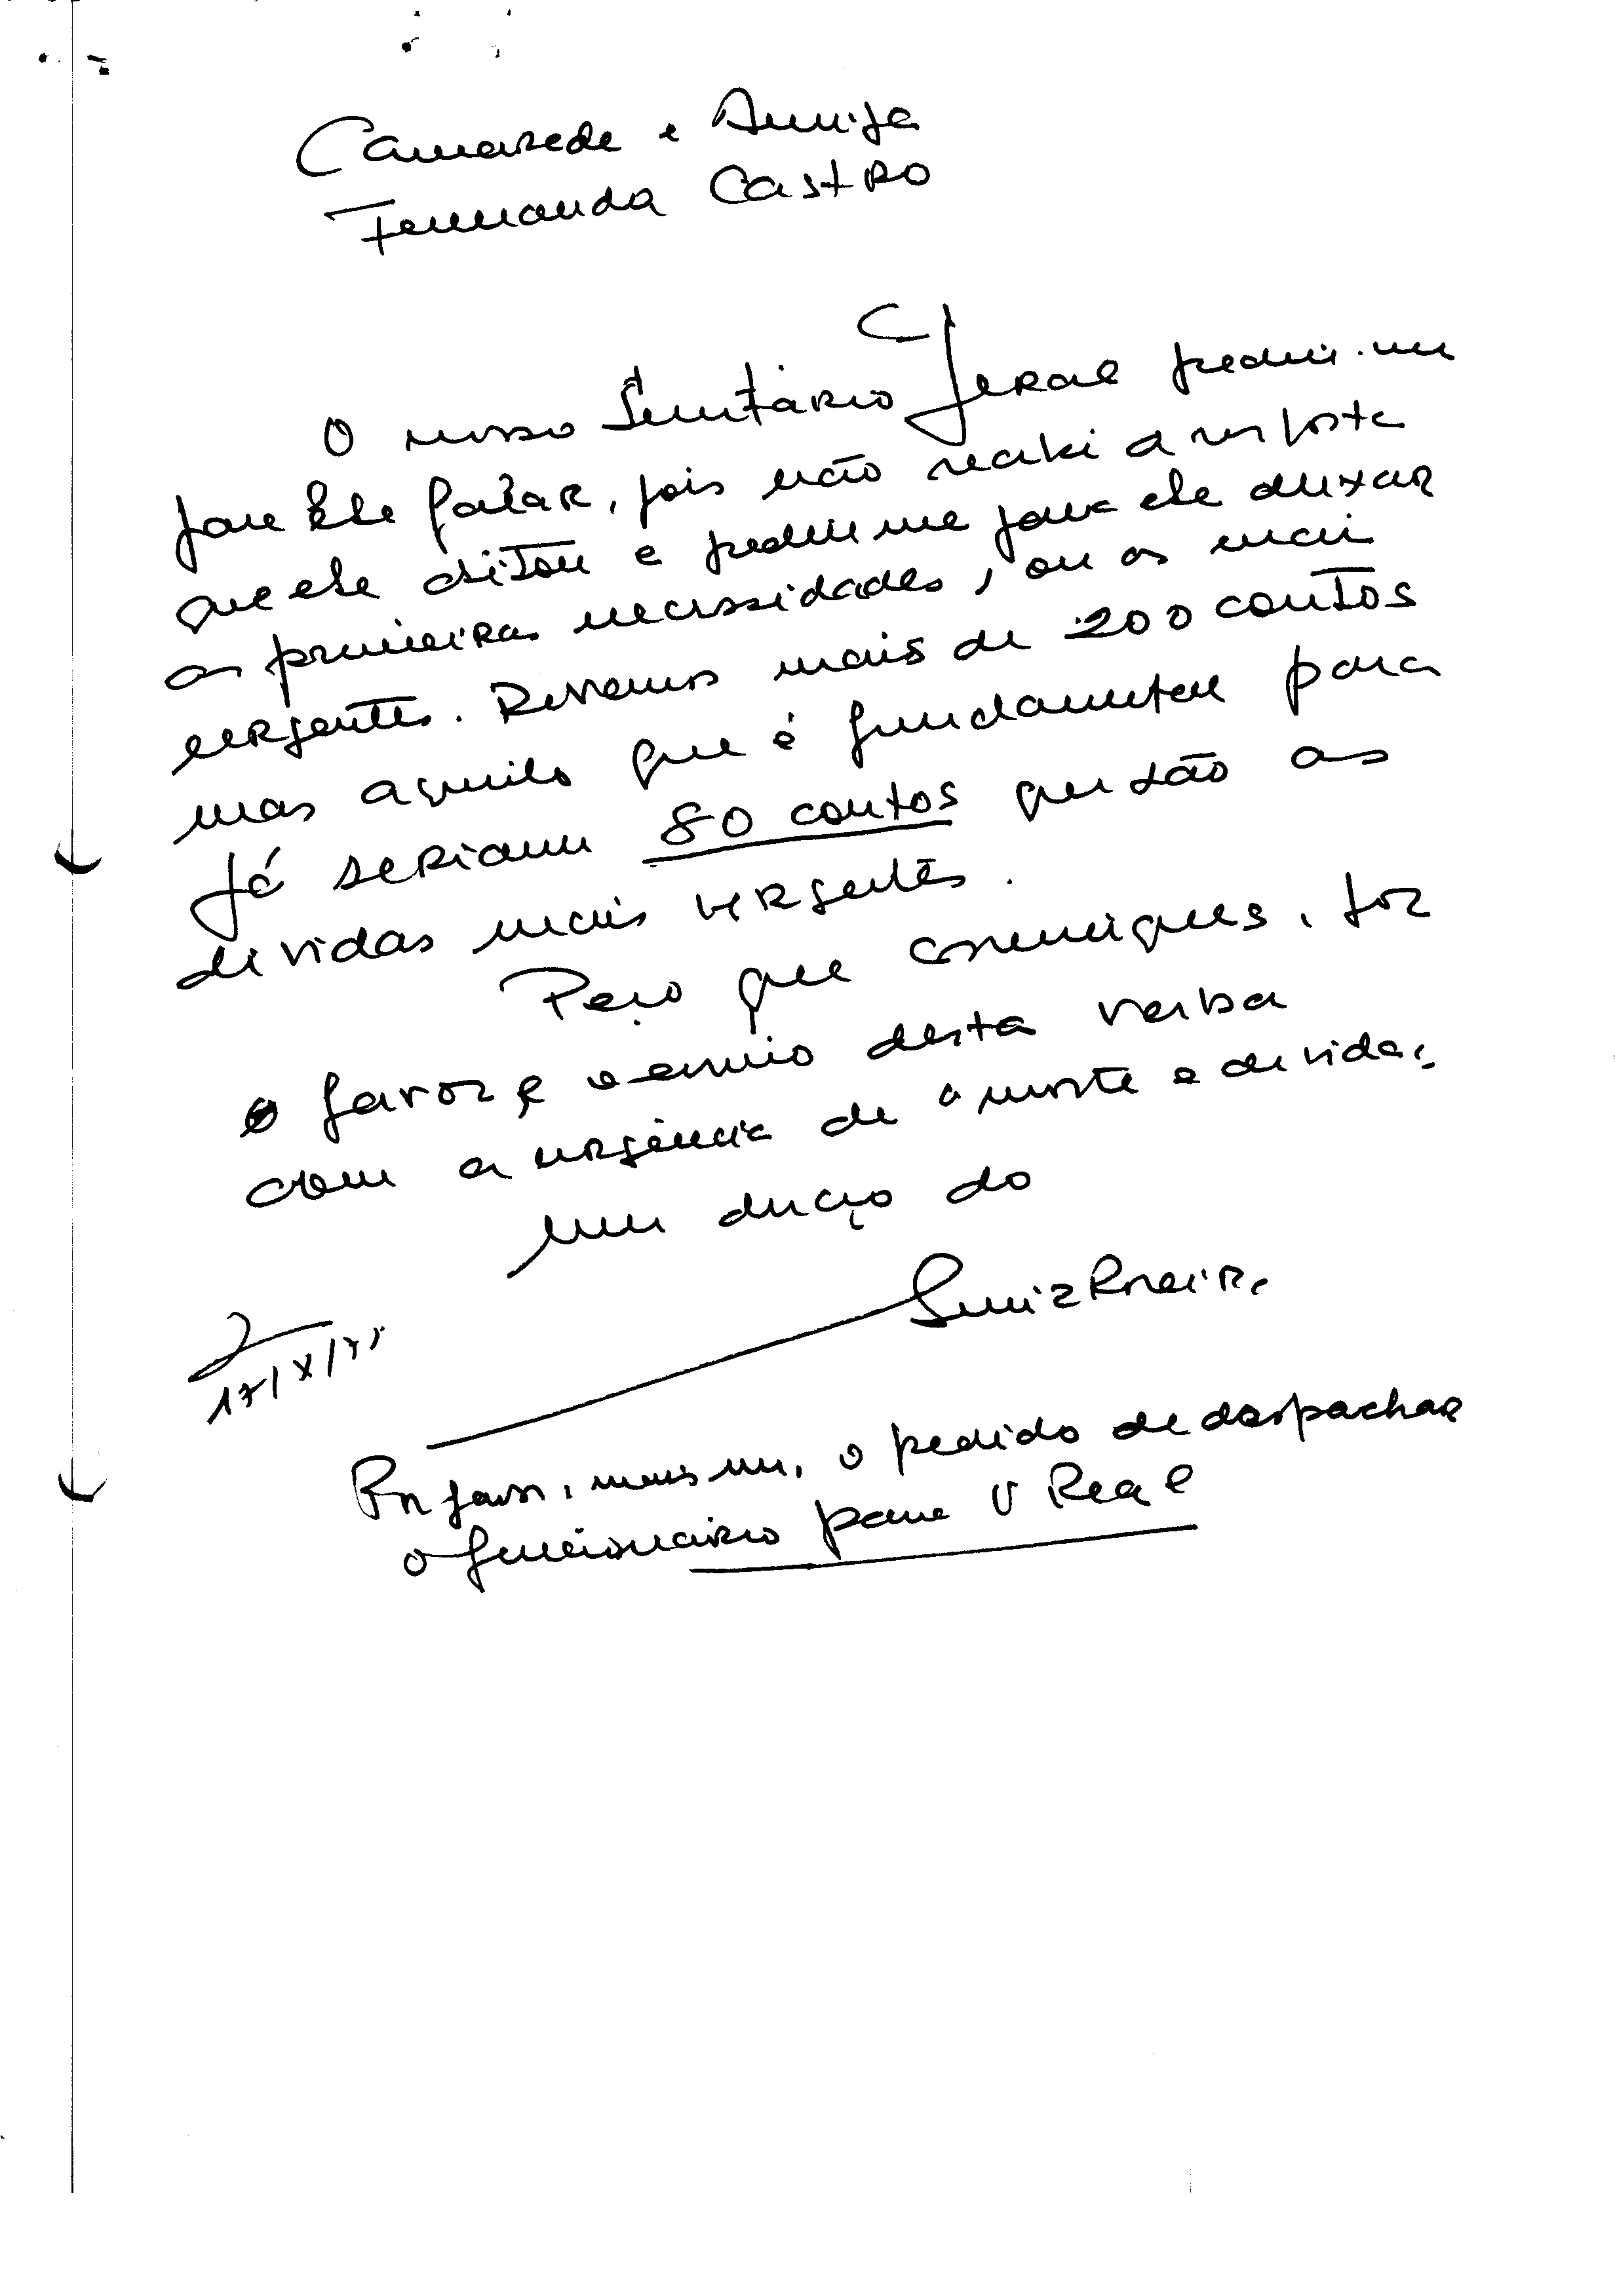 Camarada e Amiga
Fernanda Castro
O nosso Secretário Geral pediu-me
para lhe falar, pois não recebi a resposta
que ele ditou e pediu me para ele deixar
as primeiras necessidades, ou as mais
urgentes. Devemos mais de 200 contos
mas aquilo que é fundamental para
já seriam 80 contos que são as
dividas mais urgentes.
Peço que comuniques, por
favor, o envio desta verba
com a urgência de "morte e dividas
um abraço do
17/X/75
Por favor, mais um, o pedido de despachar
o funcionário para V Real